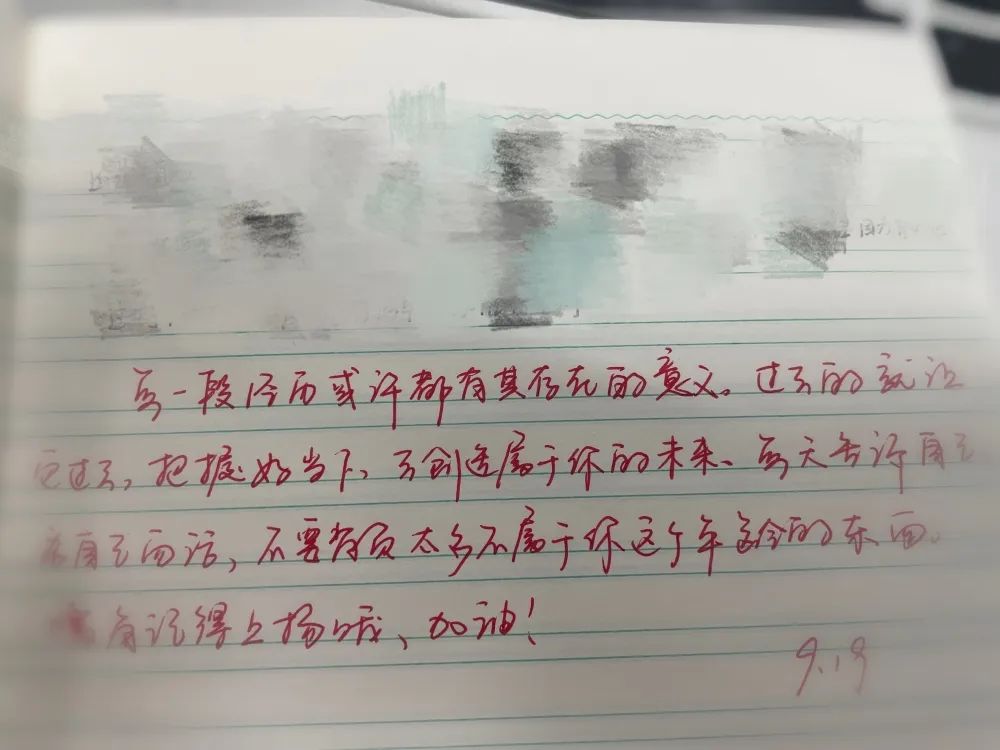 因为
每一段经历或许都有其存在的意义。过去的就让
它过去,把握好当下、去创造属于你的未来、每天告诉自己
自己而活,不要背负太多不属于你这个年龄的东西。
角记得上扬哦、加油!
9.19